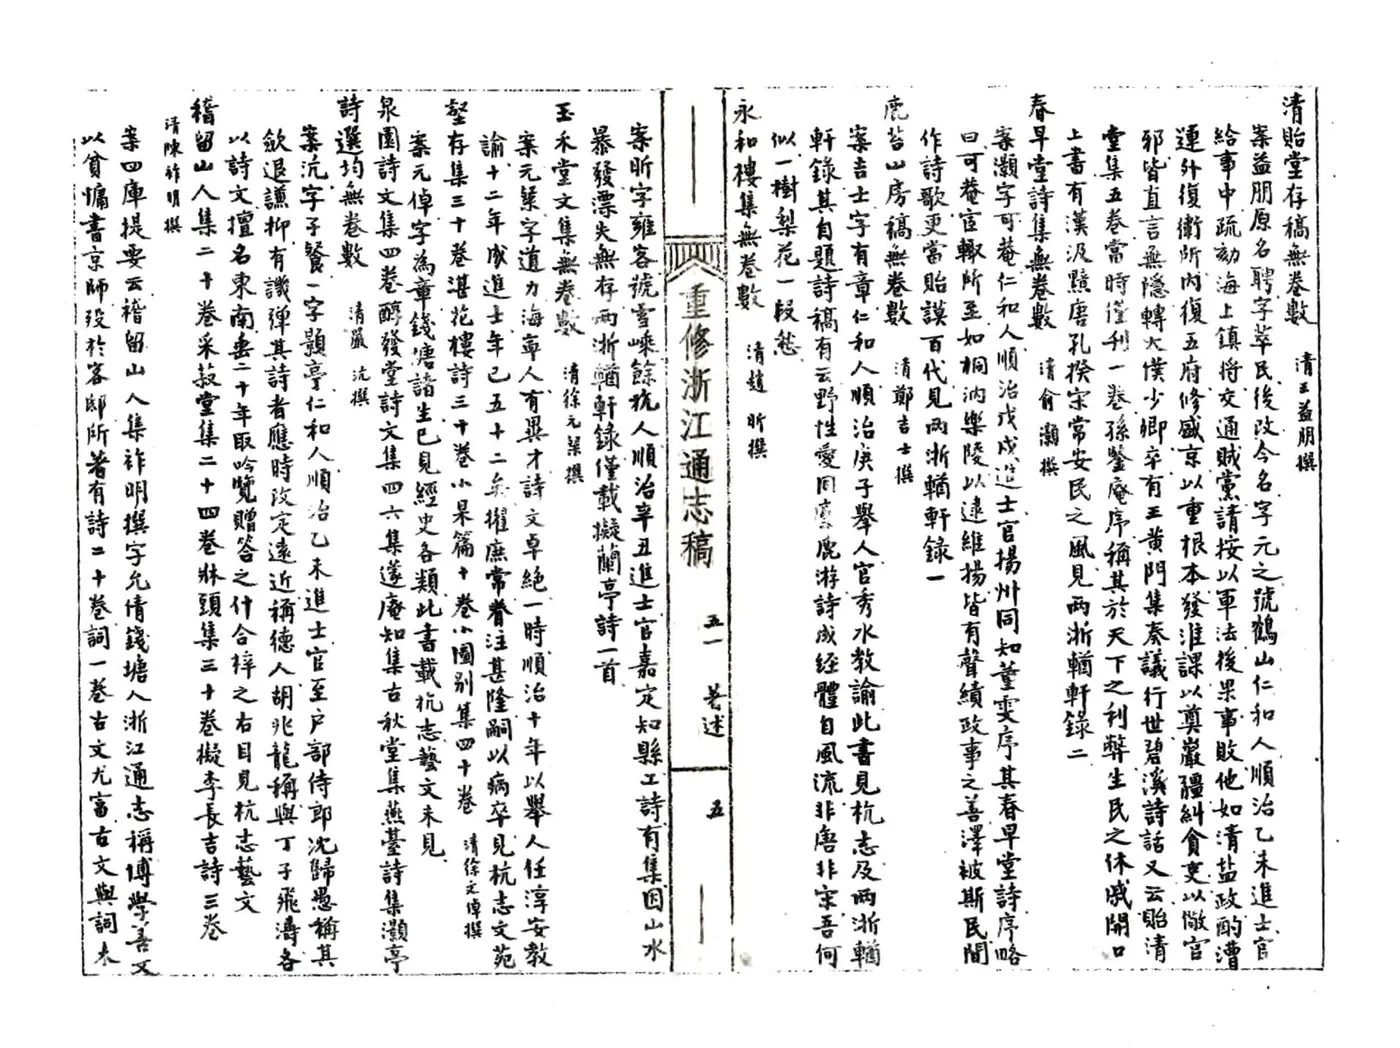 清貽堂存稿無卷數　清王益朋撰
案益朋原名聘字萃民後改今名字元之號鶴山仁和人順治乙未進士官
給事中疏劾海上鎮將交通賊黨請按以軍法後果事敗他如清盐政酌漕
連外復衛所內復五府修盛京以重根本發淮課以奠巖疆糾貪吏以儆官
邪皆直言無隱轉大僕少卿卒有王黄門集奏議行世碧溪詩話又云貽清
堂集五卷當時僅刊一卷孫鍳庵序稱其於天下之利弊生民之休戚開口
上書有漢汲黯唐孔揆宋常安民之風見两浙輶軒錄二
春早堂詩集無卷數　清俞灝撰
案灝字可菴仁和人順治戊戌進士官揚州同知董雯序其春早堂詩序略
曰可菴宦轍所至如桐汭樂陵以逮維揚皆有聲績政事之善澤被斯民間
作詩歌更當貽謨百代見两浙輶軒錄一
鹿苔山房稿無卷數　清鄭吉士撰
案吉士字有章仁和人順治庚子舉人官秀水教諭此書見杭志及两浙輶
軒錄其自題詩稿有云野性愛同麋鹿游詩成經體自風流非唐非宋吾何
似一樹梨花一段愁
永和樓集無卷數　清趙昕撰
重修浙江通志稿　五一　著述　五
案昕字雍客號雪嵊餘杭人順治辛丑進士官嘉定知縣工詩有集因山水
暴發漂失無存两浙輶軒錄僅載擬蘭亭詩一首
玉禾堂文集無卷數　清徐元粲撰
案元粲字道力海甯人有異才詩文卓絶一時順治十年以舉人任淳安教
諭十二年成進士年已五十二矣擢庶常眷注甚隆嗣以病卒見杭志文苑
壑存集三十卷湛花樓詩三十卷小杲篇十卷小圃别集四十卷　清徐之倬撰
案元倬字為章錢塘諸生已見經史各類此書載杭志藝文未見
泉園詩文集四卷醇發堂詩文集四六集邃庵知集古秋堂集燕臺詩集灝亭
詩選均無卷數　清嚴沆撰
案沆字子餐一字顥亭仁和人順治乙未進士官至户部侍郎沈歸愚稱其
歛退謙抑有譏彈其詩者應時改定遠近稱德人胡兆龍稱與丁子飛濤各
以詩文擅名東南垂二十年取吟覽贈答之什合梓之右目見杭志藝文
稽留山人集二十卷采菽堂集二十四卷牀頭集三十卷擬李長吉詩三卷
清陳祚明撰
案四庫提要云稽留山人集祚明撰字允倩錢塘人浙江通志稱博學善文
以貧傭書京師歿於客邸所著有詩二十卷詞一卷古文尤富古文與詞未